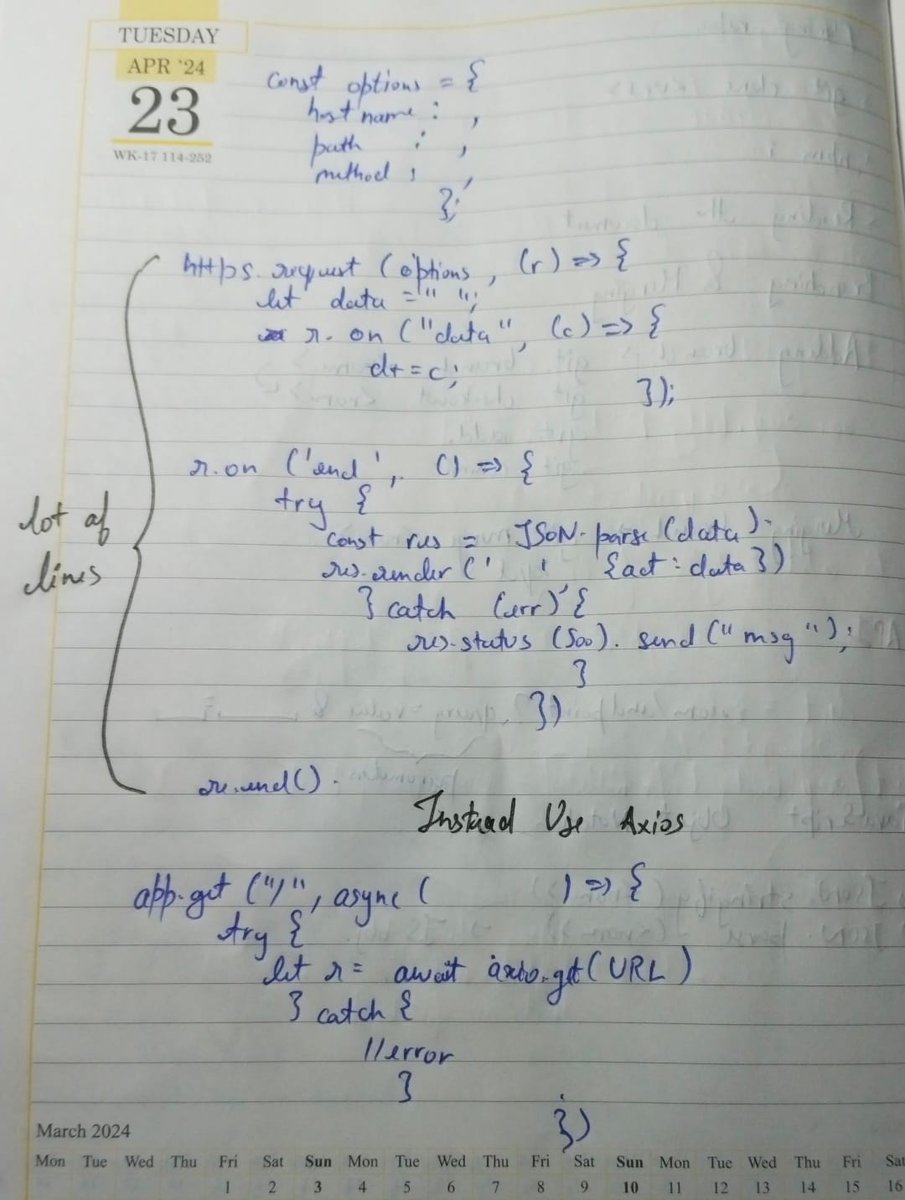 TUESDAY
APR '24
23
WK-17 114-252
const options = {
host name : ,
path : ,
method : ,
};
https.request (options , (r) => {
let data = " ";
r. on ("data", (c) => {
d+ = c;
});
r.on ('end', () => {
try {
const res = JSON.parse(data).
res.render (' ' {act : data})
} catch (err) {
res.status (500). send ("msg");
}
})
re.end().
lot of
lines
Instead Use Axios
app.get ("/", async ( ) => {
try {
let r = await axio.get(URL)
} catch {
//error
}
})
March 2024
Mon Tue Wed Thu Fri Sat Sun Mon Tue Wed Thu Fri Sat Sun Mon Tue Wed Thu Fri Sat
1 2 3 4 5 6 7 8 9 10 11 12 13 14 15 16